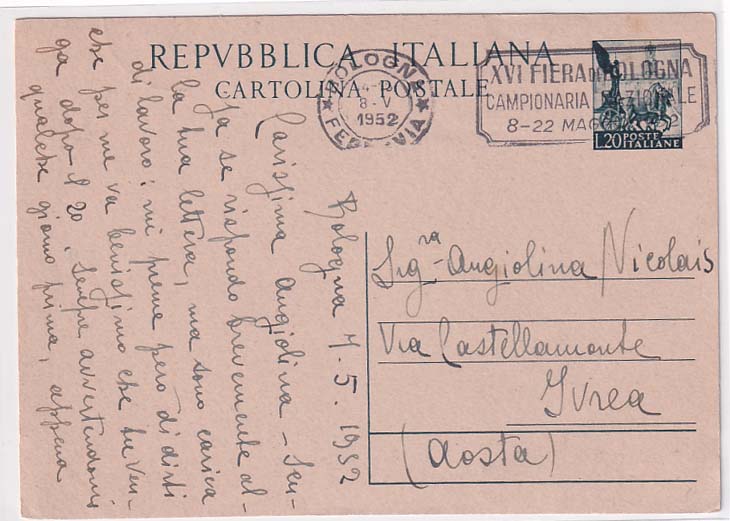 REPVBBLICA ITALIANA
CARTOLINA POSTALE
BOLOGNA
8-V
1952
FERROVIA
XVI FIERA DI BOLOGNA
CAMPIONARIA NAZIONALE
8-22 MAGGIO 1952
L.20 POSTE
ITALIANE
Sig.ra Angiolina Nicolais
Via Castellamonte
Ivrea
(Aosta)
Bologna 7.5.1952
Carissima Angiolina - Scu-
sa se rispondo brevemente al-
la tua lettera, ma sono carica
di lavoro: mi preme però di dirti
che per me va benissimo che tu ven-
ga dopo il 20. Scrivi avvertendomi
qualche giorno prima, appena